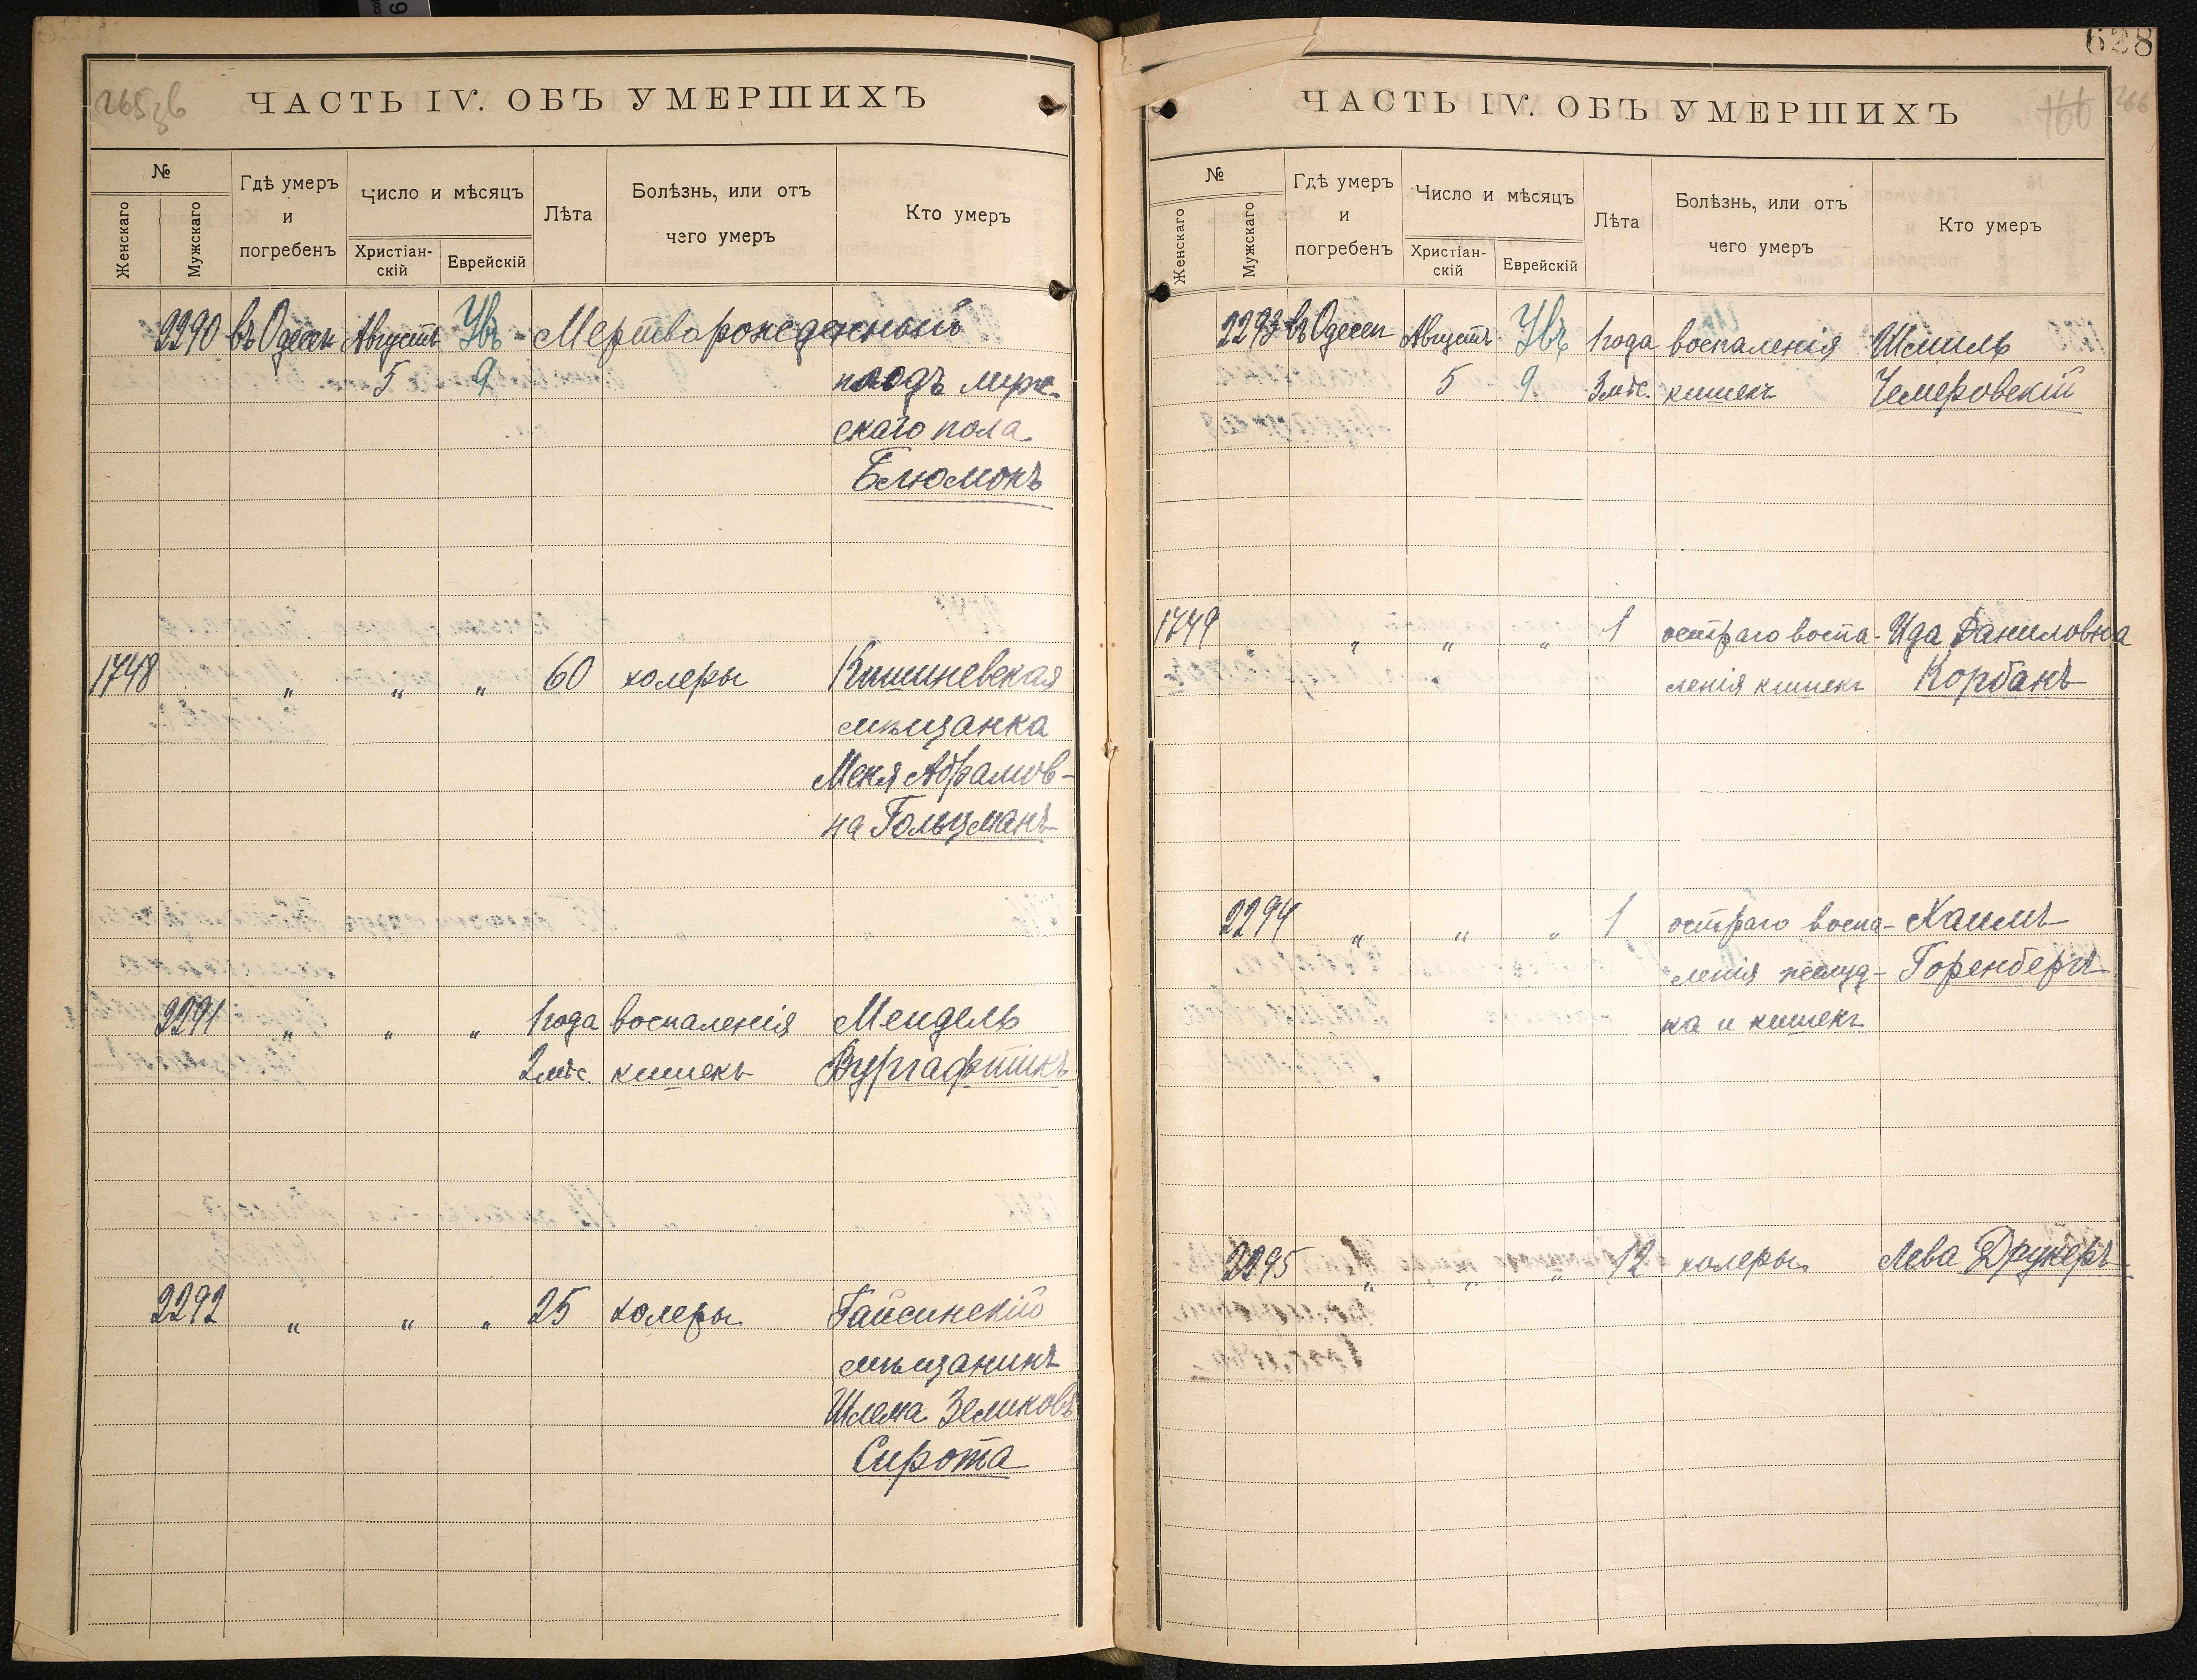 265 об
ЧАСТЬ IV. ОБЪ УМЕРШИХЪ
№
Женскаго
Мужскаго
Гдѣ умеръ
и
погребенъ
Число и мѣсяцъ
Христіан-
скій
Еврейскій
Лѣта
Болѣзнь, или отъ
чего умеръ
Кто умеръ
2290 въ Одессѣ Августъ Увъ - Мертворожденный
5 9 плодъ муж-
скаго пола
Блюмокъ
1748 " " " 60 холеры Кишиневская
мѣщанка
Меня Абрамов-
на Гольцманъ
2291 " " " 1 года воспаленія Мендель
2 мѣс. кишекъ Вургафтикъ
2292 " " " 25 холеры Гайсинскій
мѣщанинъ
Шлема Зеликовъ
Сирота
628
ЧАСТЬ IV. ОБЪ УМЕРШИХЪ
166 266
№
Женскаго
Мужскаго
Гдѣ умеръ
и
погребенъ
Число и мѣсяцъ
Христіан-
скій
Еврейскій
Лѣта
Болѣзнь, или отъ
чего умеръ
Кто умеръ
2293 въ Одессѣ Августъ Увъ 1 года воспаленія Шмиль
5 9. 3 мѣс. кишекъ Чемеровскій
1749 " " " 1 остраго воспа- Ида Даниловна
ленія кишекъ Корбанъ
2294 " " " 1 остраго воспа- Хаимъ
ленія желуд- Горенбергъ
ка и кишекъ
2295 " " " 12 холеры Лева Друкеръ